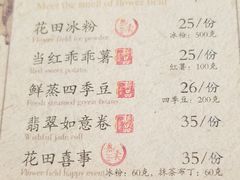 Meet the smell of flower field
花田冰粉 25/份
Flower field ice powder 冰粉：500克
当红乖乖薯 25/份
Red sweet potato 红薯：100克
鲜蒸四季豆 26/份
Fresh steamed green beans 四季豆：200克
翡翠如意卷 35/份
Wishful jade roll
花田喜事 35/份
Flower field happy event 冰粉：60克，抹茶布丁：60克